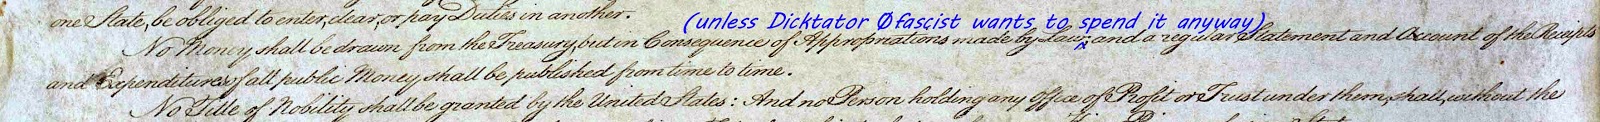 one State, be obliged to enter, clear, or pay Duties in another.
(unless Dicktator Øfascist wants to spend it anyway)
No Money shall be drawn from the Treasury, but in Consequence of Appropriations made by Law; and a regular Statement and Account of the Receipts
and Expenditures of all public Money shall be published from time to time.
No Title of Nobility shall be granted by the United States: And no Person holding any Office of Profit or Trust under them, shall, without the